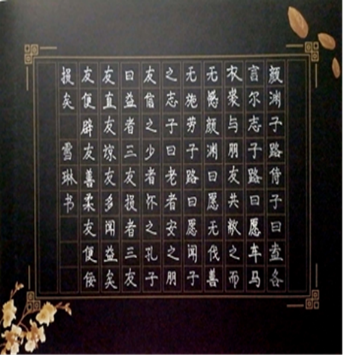 颜渊子路侍子曰盍各
言尔志子路曰愿车马
衣裘与朋友共敝之而
无憾颜渊曰愿无伐善
无施劳子路曰愿闻子
之志子曰老者安之朋
友信之少者怀之孔子
曰益者三友损者三友
友直友谅友多闻益矣
友便辟友善柔友便佞
损矣 雪琳书